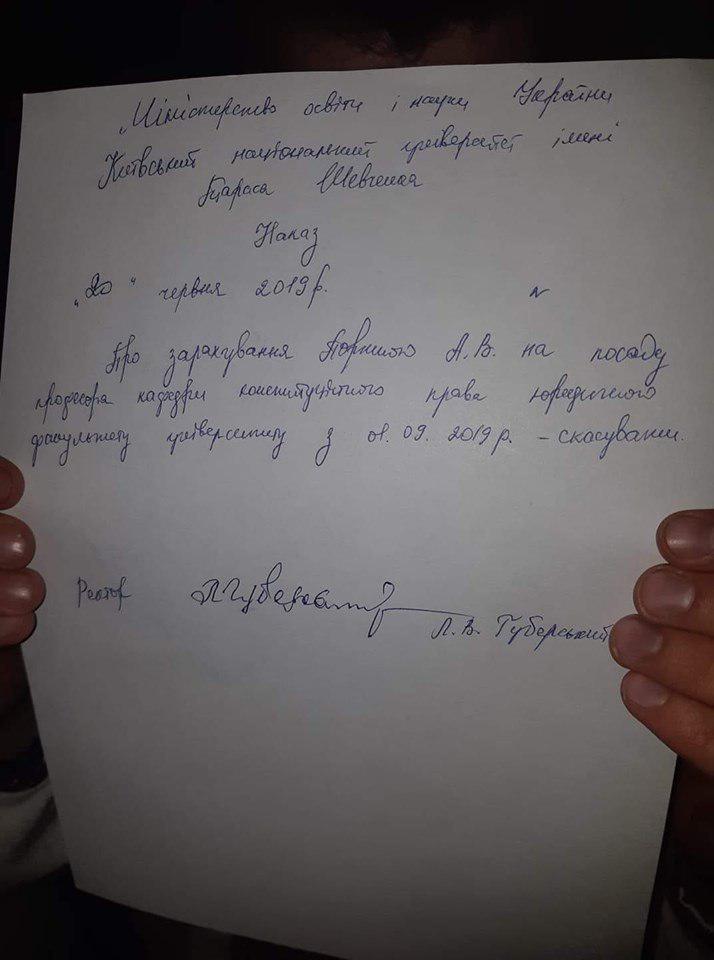 „Міністерство освіти і науки України
Київський національний університет імені
Тараса Шевченка
Наказ
„20" червня 2019 р. №
Про зарахування Портнова А.В. на посаду
професора кафедри конституційного права юридичного
факультету університету з 01.09.2019р. – скасувати.
Ректор Л.В. Губерський